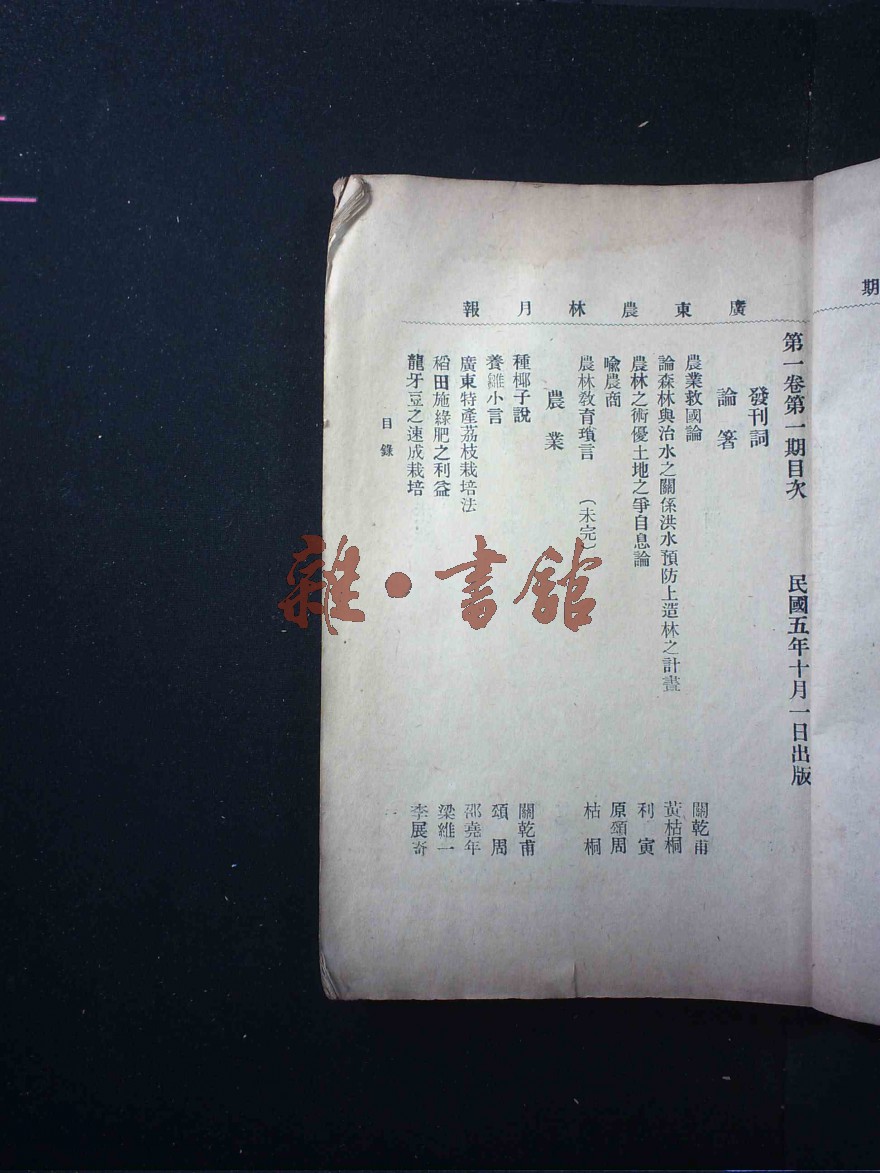 期
廣東農林月報
第一卷第一期目次　民國五年十月一日出版
發刊詞
論箸
農業救國論　關乾甫
論森林與治水之關係洪水預防上造林之計畫　黃枯桐
農林之術優土地之爭自息論　利寅
喩農商　原頌周
農林敎育瑣言　（未完）　枯桐
農業
種椰子說　關乾甫
養雞小言　頌周
廣東特產荔枝栽培法　邵堯年
稻田施綠肥之利益　梁維一
龍牙豆之速成栽培　李展奇
目錄
雜·書館